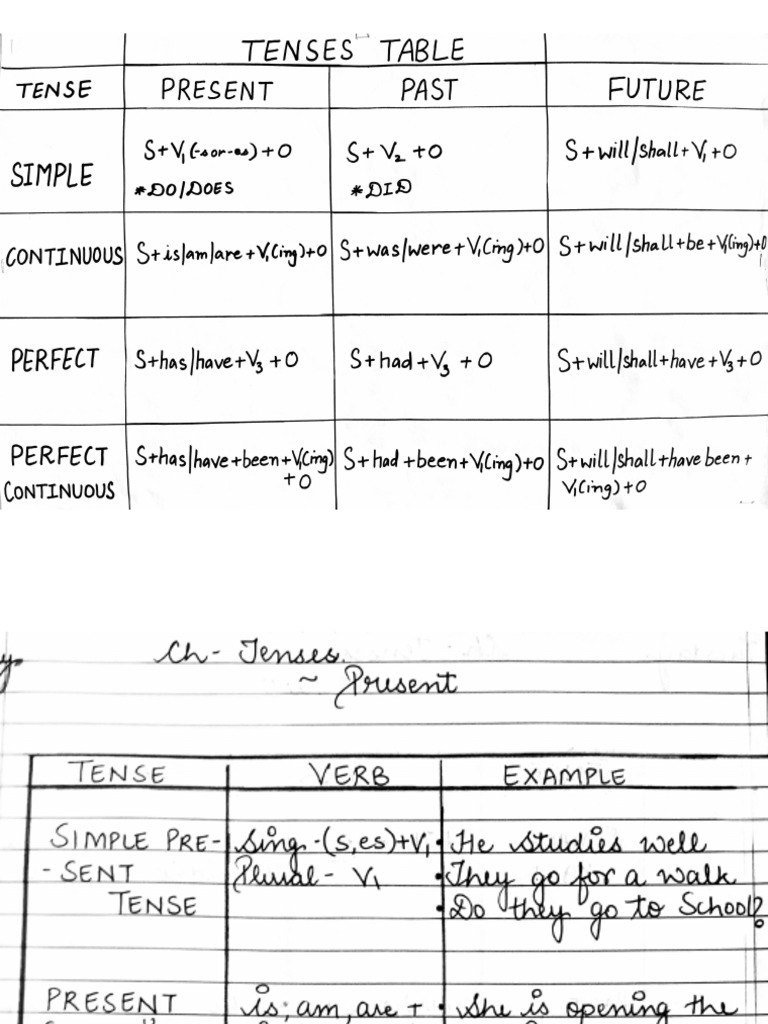 TENSES TABLE
TENSE PRESENT PAST FUTURE
SIMPLE
S+V₁(-s or-es)+O
*DO/DOES
S+V₂+O
*DID
S+will/shall+V₁+O
CONTINUOUS
S+is/am/are+V₁(ing)+O
S+was/were+V₁(ing)+O
S+will/shall+be+V₁(ing)+O
PERFECT
S+has/have+V₃+O
S+had+V₃+O
S+will/shall+have+V₃+O
PERFECT
CONTINUOUS
S+has/have+been+V₁(ing)
+O
S+had+been+V₁(ing)+O
S+will/shall+have been+
V₁(ing)+O
Ch- Tenses.
~ Present
TENSE VERB EXAMPLE
SIMPLE PRE-
-SENT
TENSE
Sing-(s,es)+V₁
Plural- V₁
• He studies well
• They go for a walk
• Do they go to School?
PRESENT
is, am, are +
• She is opening the